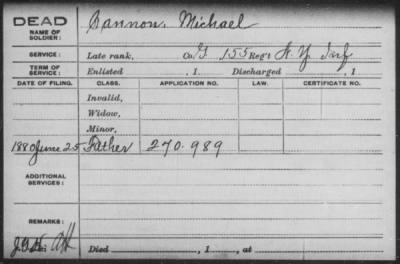 DEAD
NAME OF SOLDIER: Bannon, Michael
SERVICE: Late rank, Co. G 155 Reg't N.Y. Inf
TERM OF SERVICE: Enlisted , 1 . Discharged , 1 .
DATE OF FILING. CLASS. APPLICATION NO. LAW. CERTIFICATE NO.
Invalid,
Widow,
Minor,
1880 June 25 Father 270.989
ADDITIONAL SERVICES:
REMARKS:
Died , 1 , at